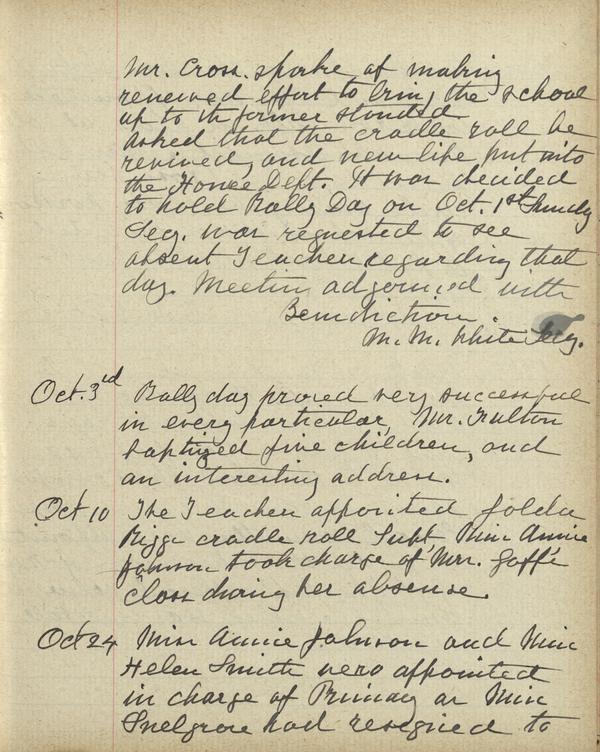 Mr. Cross. spoke of making
renewed effort to bring the school
up to its former standed.
Asked that the cradle roll be
revived, and new life put into
the Home Dept. It was decided
to hold Rally Day on Oct. 1st Sunday
Secy. was requested to see
absent Teachers regarding that
day. Meeting adjourned with
Benediction.
M. M. White Secy.
Oct. 3rd Rally day proved very successful
in every particular, Mr. Fulton
baptized five children, and
an interesting address.
Oct 10 The Teachers appointed
Riggs cradle roll Supt. Miss Annie
Johnson took charge of Mrs. Goff's
class during her absense.
Oct 24 Miss Annie Johnson and Miss
Helen Smith were appointed
in charge of Primary as Miss
Snelgrove had resigned to